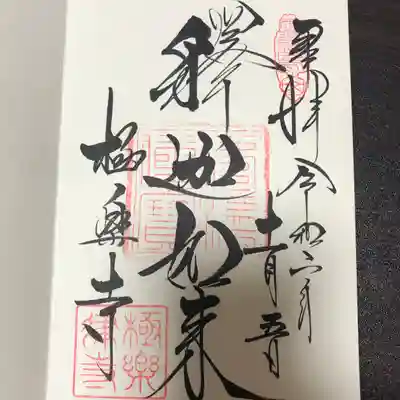 奉拝 令和六年
十一月五日
釋迦如来
極樂寺
極樂律寺